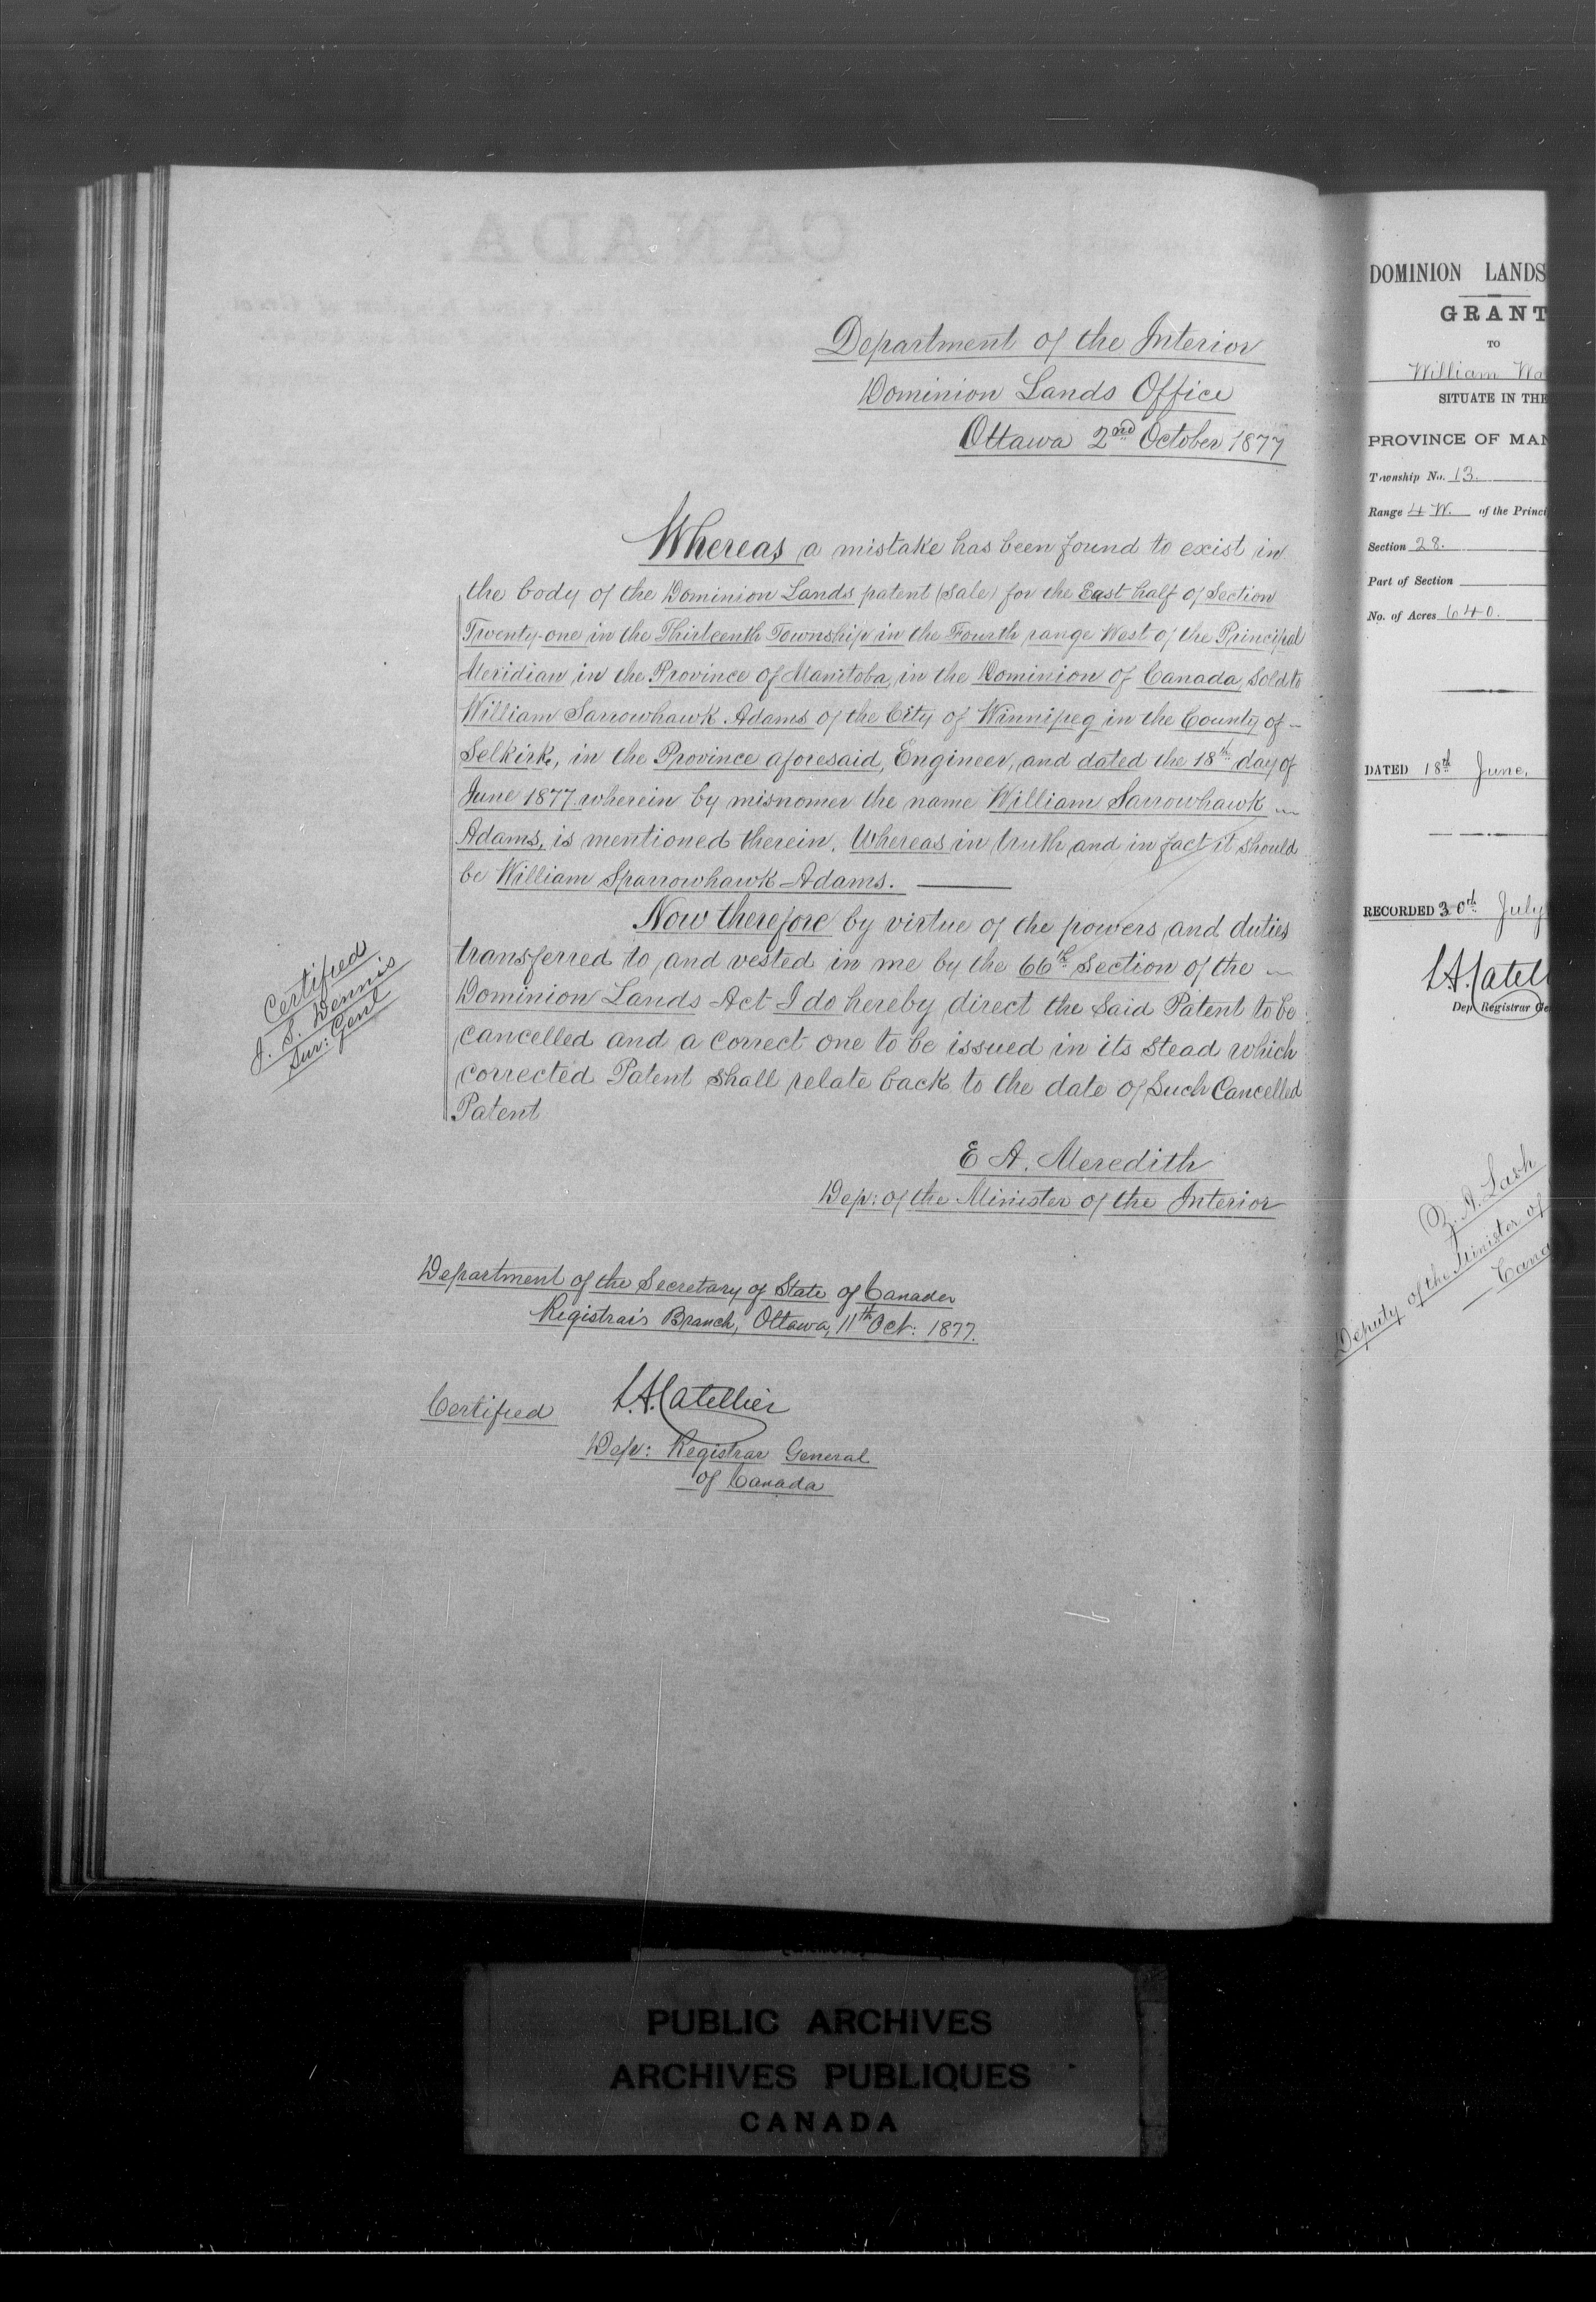 Department of the Interior
Dominion Lands Office
Ottawa 2nd October 1877
Whereas a mistake has been found to exist in
the body of the Dominion Lands patent (sale) for the East half of Section
Twenty-one in the Thirteenth Township in the Fourth range West of the Principal
Meridian in the Province of Manitoba, in the Dominion of Canada, sold to
William Sarrowhawk Adams of the City of Winnipeg in the County of –
Selkirk, in the Province aforesaid, Engineer, and dated the 18th day of
June 1877 wherein by misnomer the name William Sarrowhawk
Adams, is mentioned therein. Whereas in truth and in fact it should
be William Sparrowhawk Adams. ———
Now therefore by virtue of the powers and duties
transferred to and vested in me by the 66th Section of the
Dominion Lands Act I do hereby direct the said Patent to be
cancelled and a correct one to be issued in its stead which
corrected Patent shall relate back to the date of Such Cancelled
Patent
Certified
J. S. Dennis
Sur: Genl
E A. Meredith
Dep: of the Minister of the Interior
Department of the Secretary of State of Canada
Registrar's Branch, Ottawa, 11th Oct: 1877.
Certified L.A. Catellier
Dep: Registrar General
of Canada
DOMINION LANDS
GRANT
TO
William
SITUATE IN THE
PROVINCE OF MAN
Township No. 13.
Range 4 W. of the Princi
Section 28.
Part of Section
No. of Acres 640.
DATED 18th June,
RECORDED 30th July
L.A. Catell
Dep. Registrar Ge
Z. A. Lash
Deputy of the Minister of
Cana
CANADA.
PUBLIC ARCHIVES
ARCHIVES PUBLIQUES
CANADA